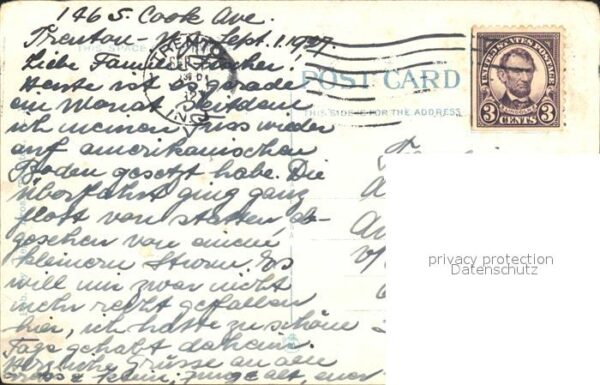 146 S. Cook Ave.
Trenton - N.J. Sept. 1. 1927.
THIS SPACE
TRENTON
SEP
N.J.
Liebe Familie !
Heute ist es gerade
POST CARD
ein Monat seitdem
THIS SIDE IS FOR THE ADDRESS
ich meinen Fuss wieder
auf amerikanischen
Boden gesetzt habe. Die
Überfahrt ging ganz
flott von statten, ab-
gesehen von einem
kleinern Sturm. Es
will mir zwar nicht
mehr recht gefallen
hier, ich hatte zu schöne
Tage gehabt daheim.
Herzliche Grüsse an alle
gross & klein, jung & alt, euer
UNITED STATES POSTAGE
LINCOLN
3 CENTS 3
privacy protection
Datenschutz